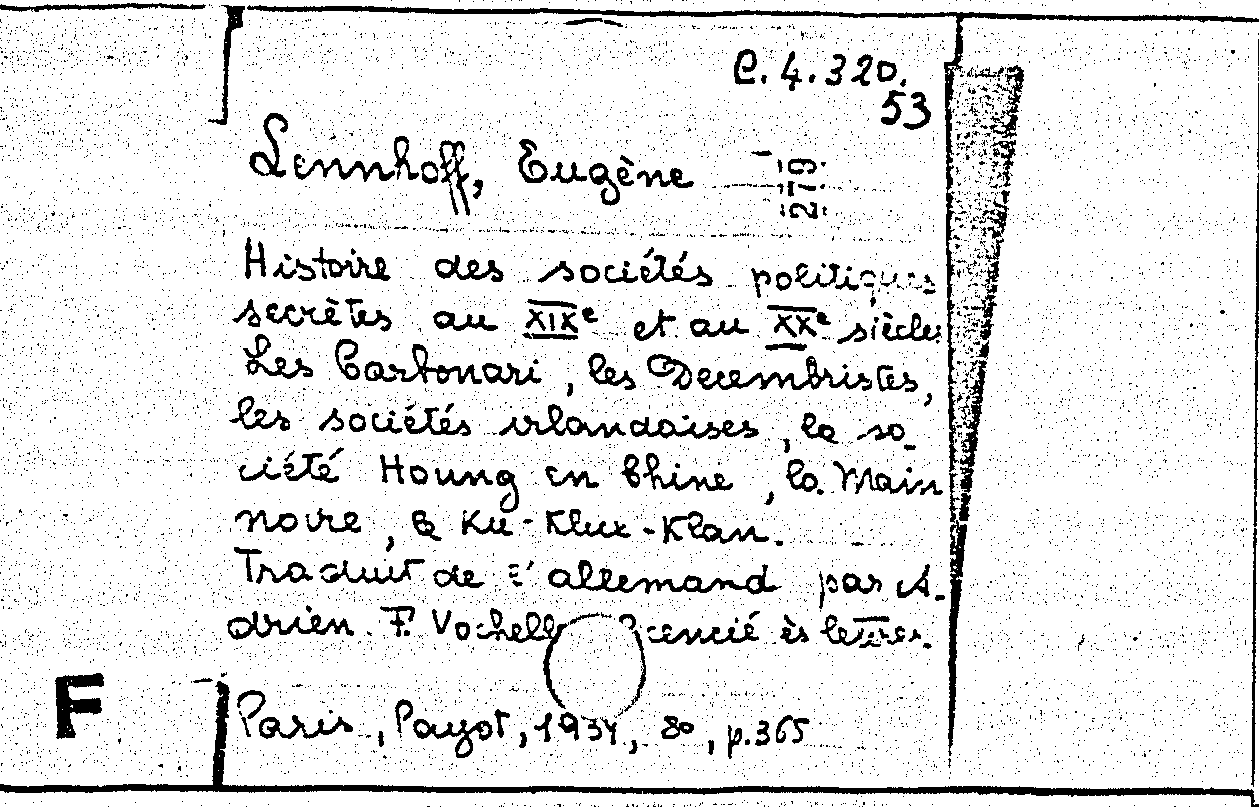 C. 4. 320.
53
Lennhoff, Eugène
279
Histoire des sociétés politiques
secrètes au XIXe et au XXe siècles
Les Carbonari, les Decembristes,
les sociétés irlandaises, la so-
ciété Houng en Chine, la Main
noire, le Ku-Klux-Klan.
Traduit de l'allemand par A-
drien. F. licencié ès lettres.
F
Paris, Payot, 1934, 8o, p. 365